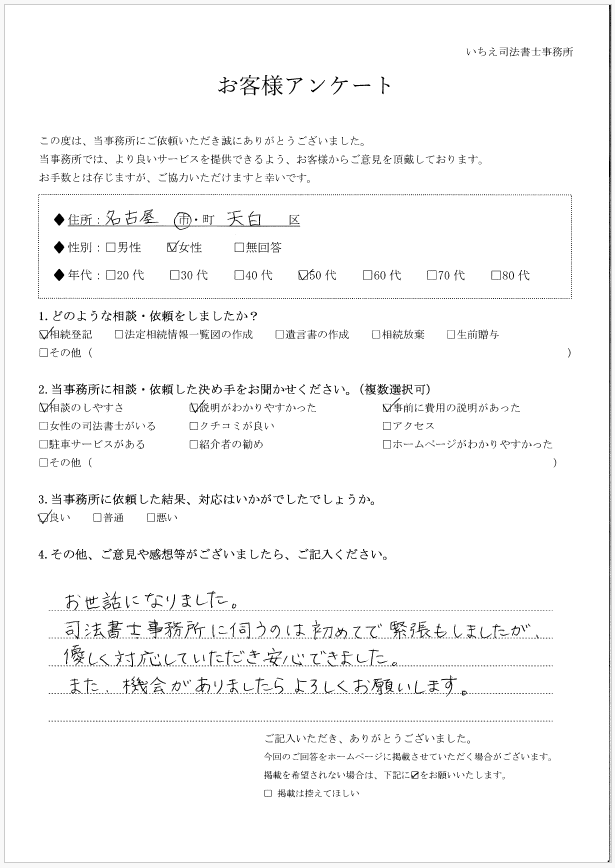 いちえ司法書士事務所
お客様アンケート
この度は、当事務所にご依頼いただき誠にありがとうございました。
当事務所では、より良いサービスを提供できるよう、お客様からご意見を頂戴しております。
お手数とは存じますが、ご協力いただけますと幸いです。
◆住所：名古屋 市・町 天白 区
◆性別：□男性 ☑女性 □無回答
◆年代：□20代 □30代 □40代 ☑50代 □60代 □70代 □80代
1.どのような相談・依頼をしましたか？
☑相続登記 □法定相続情報一覧図の作成 □遺言書の作成 □相続放棄 □生前贈与
□その他（ ）
2.当事務所に相談・依頼した決め手をお聞かせください。(複数選択可)
☑相談のしやすさ ☑説明がわかりやすかった ☑事前に費用の説明があった
□女性の司法書士がいる □クチコミが良い □アクセス
□駐車サービスがある □紹介者の勧め □ホームページがわかりやすかった
□その他（ ）
3.当事務所に依頼した結果、対応はいかがでしたでしょうか。
☑良い □普通 □悪い
4.その他、ご意見や感想等がございましたら、ご記入ください。
お世話になりました。
司法書士事務所に伺うのは初めてで緊張もしましたが、
優しく対応していただき安心できました。
また、機会がありましたらよろしくお願いします。
ご記入いただき、ありがとうございました。
今回のご回答をホームページに掲載させていただく場合がございます。
掲載を希望されない場合は、下記に☑をお願いいたします。
□ 掲載は控えてほしい